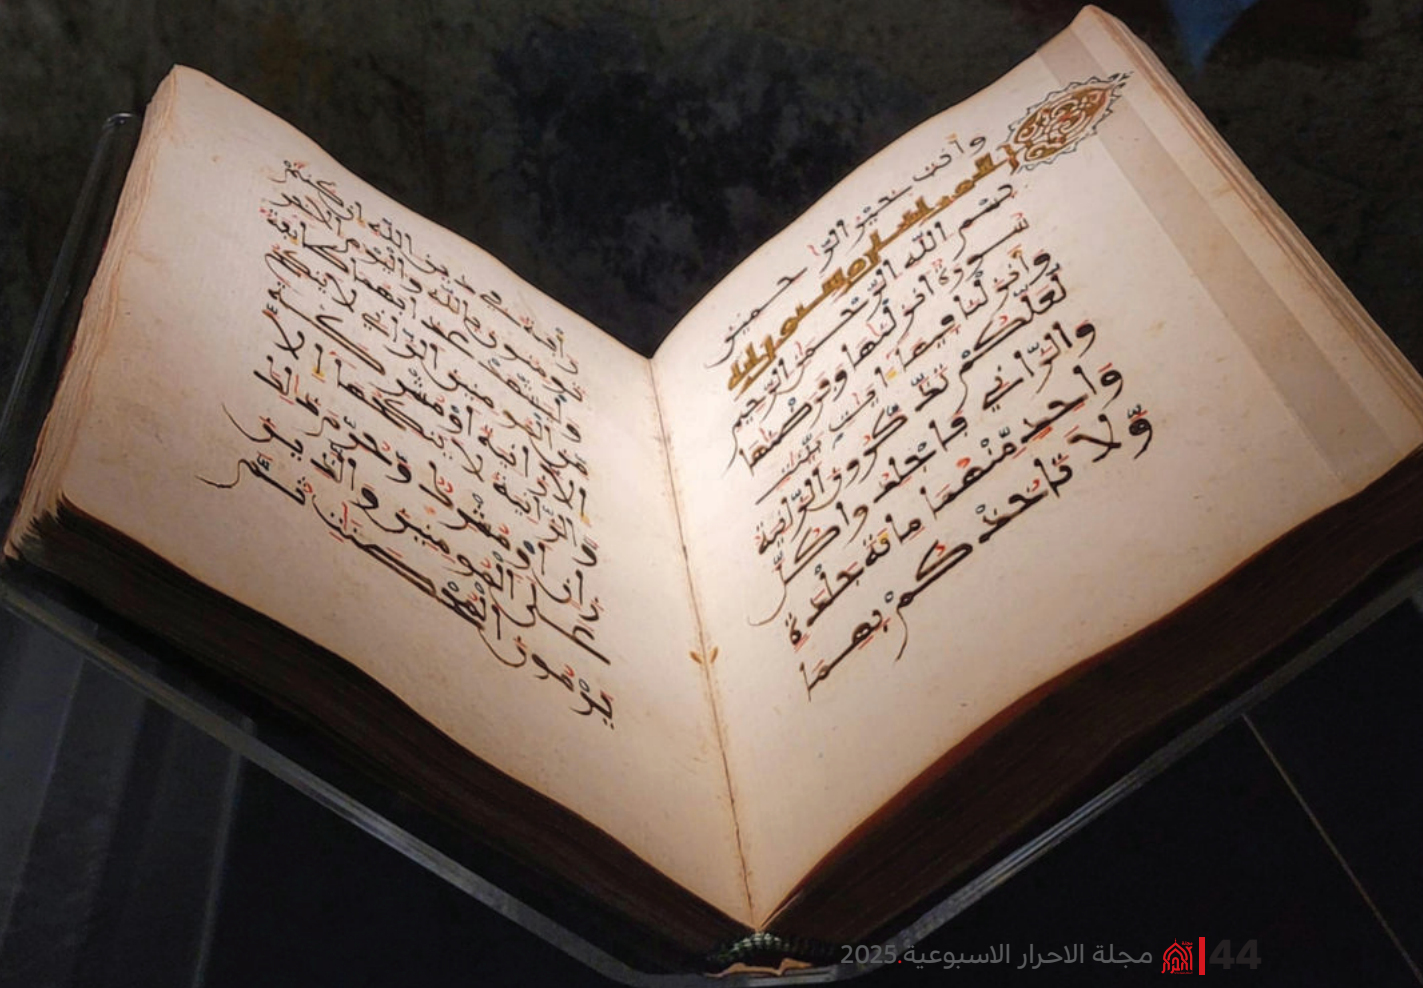 وَأَنتَ خَيْرُ الرَّٰحِمِينَ
بِسْمِ اللَّهِ الرَّحْمَٰنِ الرَّحِيمِ
سُورَةٌ أَنزَلْنَٰهَا وَفَرَضْنَٰهَا
وَأَنزَلْنَا فِيهَا ءَايَٰتٍ بَيِّنَٰتٍ
لَّعَلَّكُمْ تَذَّكَّرُونَ الزَّانِيَةُ
وَالزَّانِي فَاجْلِدُوا كُلَّ
وَٰحِدٍ مِّنْهُمَا مِائَةَ جَلْدَةٍ
وَّلَا تَأْخُذْكُم بِهِمَا
رَأْفَةٌ فِي دِينِ اللَّهِ إِن كُنتُمْ
تُومِنُونَ بِاللَّهِ وَالْيَوْمِ الْاخِرِ
وَلْيَشْهَدْ عَذَابَهُمَا طَائِفَةٌ
مِّنَ الْمُومِنِينَ الزَّانِي لَا يَنكِحُ
إِلَّا زَانِيَةً أَوْ مُشْرِكَةً
وَالزَّانِيَةُ لَا يَنكِحُهَا إِلَّا
زَانٍ أَوْ مُشْرِكٌ وَحُرِّمَ ذَٰلِكَ
عَلَى الْمُومِنِينَ وَالَّذِينَ
يَرْمُونَ الْمُحْصَنَٰتِ ثُمَّ
44 مجلة الاحرار الاسبوعية.2025